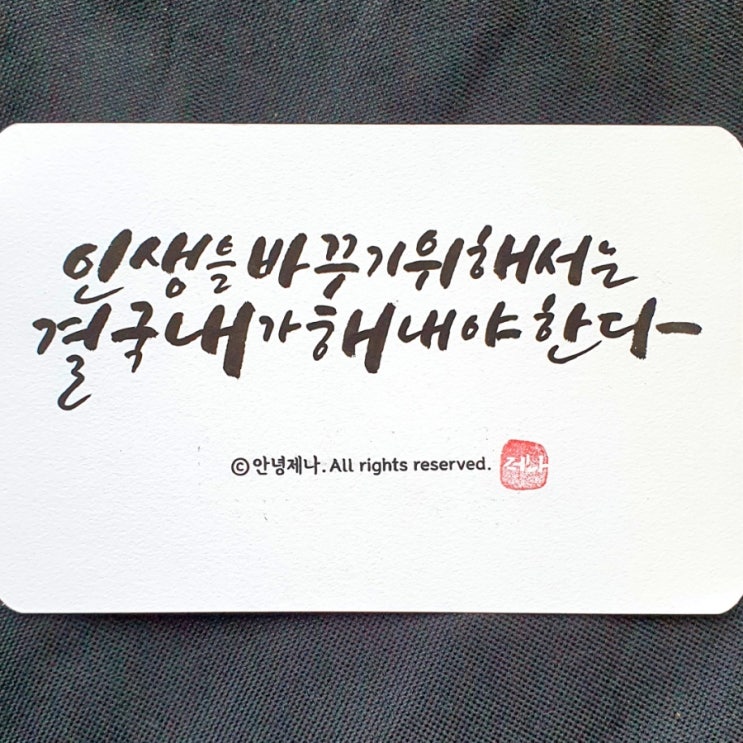 인생을 바꾸기 위해서는
결국 내가 해내야 한다
©안녕제나. All rights reserved.
제나